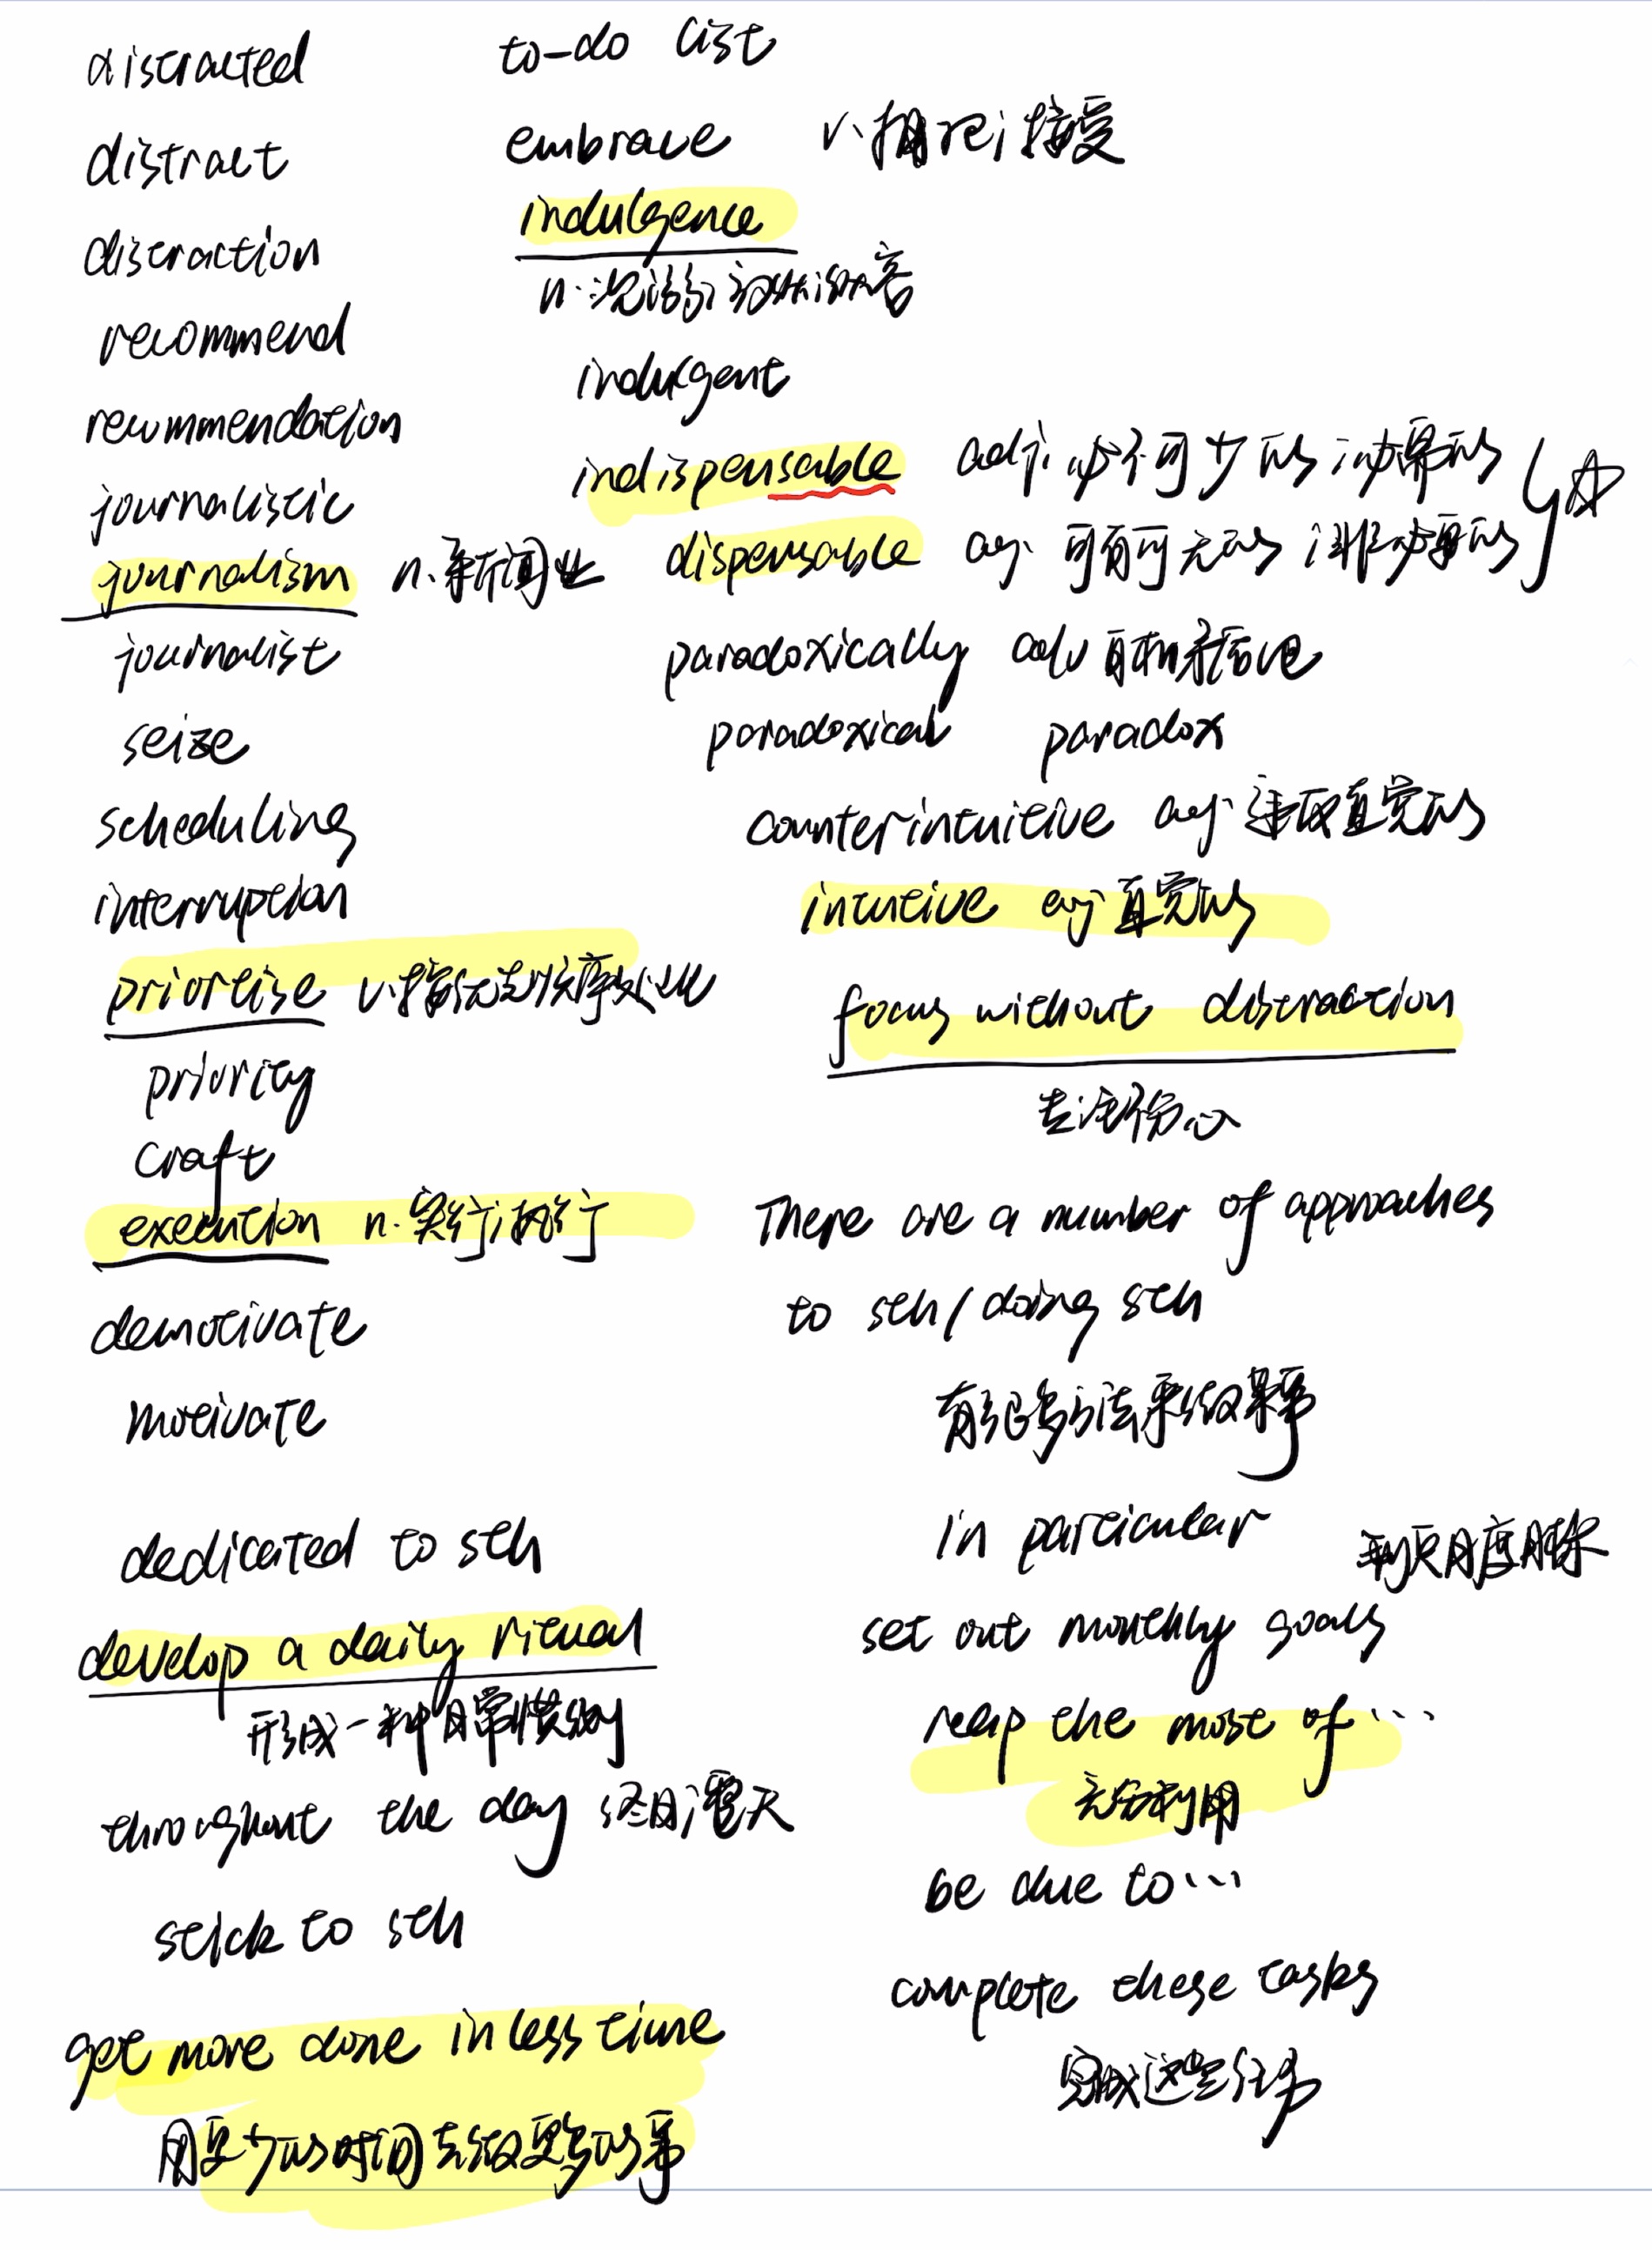 distracted
distract
distraction
recommend
recommendation
journalistic
journalism n.新闻业
journalist
seize
scheduling
interruption
prioritise v.按优先顺序处理
priority
craft
execution n.实行;执行
demotivate
motivate
dedicated to sth
develop a daily ritual
形成一种日常惯例
throughout the day 终日;整天
stick to sth
get more done in less time
用更少的时间去做更多的事
to-do list
embrace v.拥抱;接受
indulgence
n.沉溺;
indulgent
indispensable adj.必不可少的;必需的
dispensable adj.可有可无的;非必要的
paradoxically adv 自相矛盾地
paradoxical paradox
counterintuitive adj.违反直觉的
intuitive adj 直觉的
focus without distraction
专注不分心
There are a number of approaches
to sth/doing sth
有很多方法来做某事
in particular
制定月度目标
set out monthly goals
reap the most of…
充分利用
be due to…
complete these tasks
完成这些任务